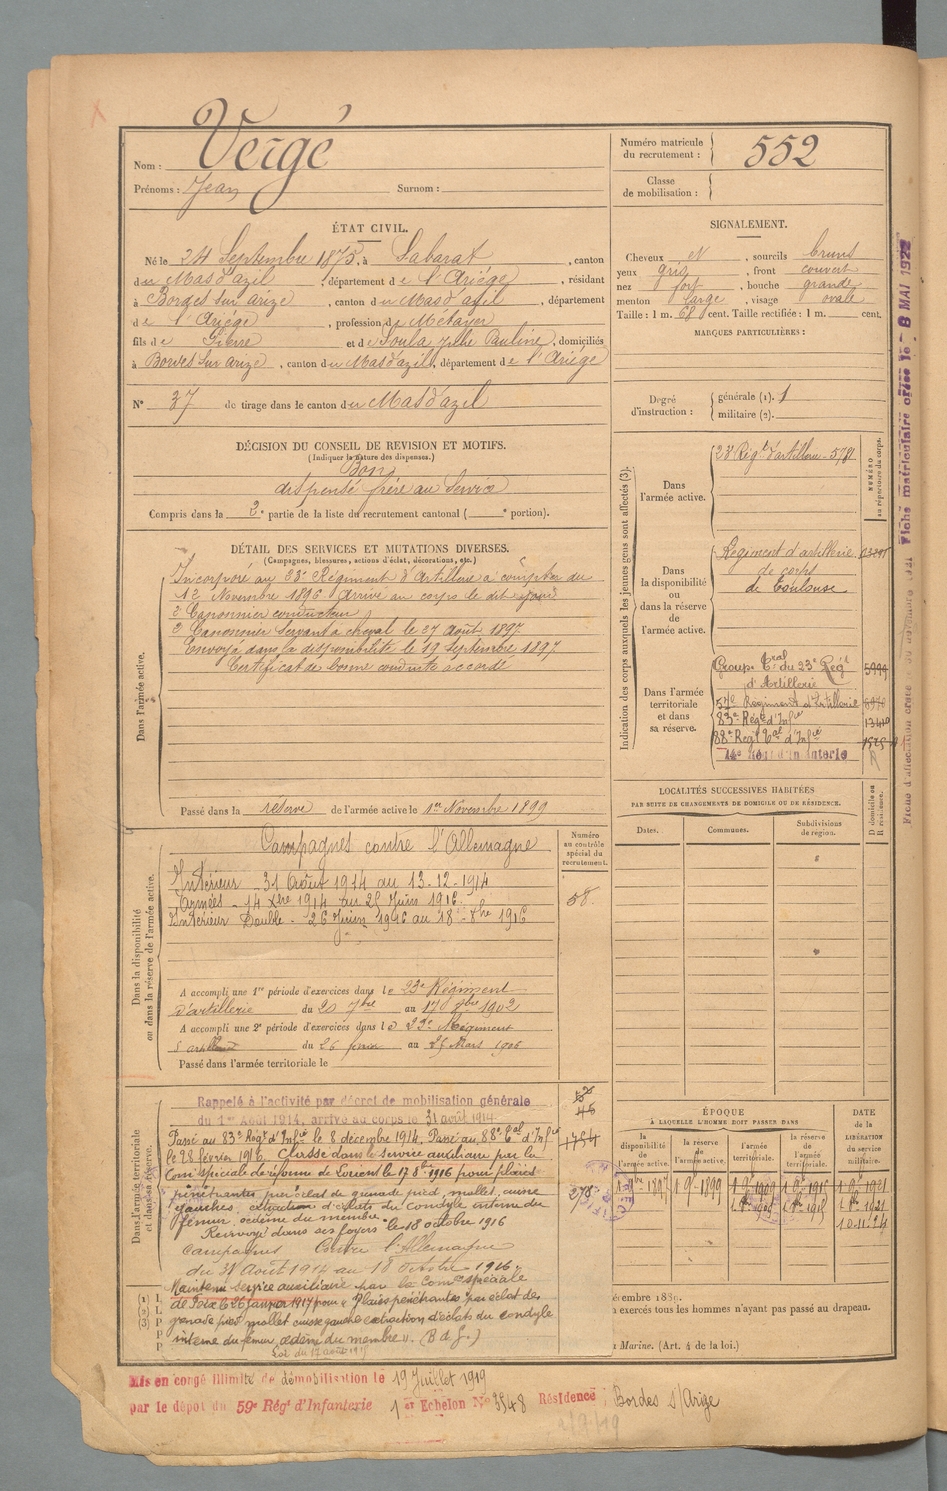 Vergé
Nom :
Prénoms : Jean Surnom :
Numéro matricule
du recrutement : 552
Classe
de mobilisation :
ÉTAT CIVIL.
Né le 24 Septembre 1875, à Sabarat, canton
du Mas d'azil, département de l'Ariége, résidant
à Bordes sur arize, canton du Mas d'azil, département
de l'Ariége, profession de Métayer
fils de Pierre et de Soula Julie Pauline, domiciliés
à Bordes sur arize, canton du Mas d'azil, département de l'Ariége
N° 37 de tirage dans le canton du Mas d'azil
SIGNALEMENT.
Cheveux N, sourcils bruns
yeux gris, front couvert
nez fort, bouche grande
menton large, visage ovale
Taille : 1 m. 68 cent. Taille rectifiée : 1 m. cent.
MARQUES PARTICULIÈRES :
Degré
d'instruction :
générale (1). 1
militaire (2).
DÉCISION DU CONSEIL DE REVISION ET MOTIFS.
(Indiquer la nature des dispenses.)
Bon
dispensé frère au service
Compris dans la 2e partie de la liste du recrutement cantonal ( e portion).
DÉTAIL DES SERVICES ET MUTATIONS DIVERSES.
(Campagnes, blessures, actions d'éclat, décorations, etc.)
Dans l'armée active.
Incorporé au 23e Régiment d'Artillerie à compter du
12 Novembre 1896 Arrivé au corps le dit jour
2e Canonnier conducteur
2e Canonnier Servant à cheval le 27 Août 1897.
Envoyé dans la disponibilité le 19 Septembre 1897
Certificat de bonne conduite accordé
Passé dans la réserve de l'armée active le 1er Novembre 1899
Indication des corps auxquels les jeunes gens sont affectés (3).
NUMÉRO
au répertoire du corps.
Dans
l'armée active.
23e Régt d'artillerie 5781
Dans
la disponibilité
ou
dans la réserve
de
l'armée active.
Régiment d'artillerie
de corps
de Toulouse
Dans l'armée
territoriale
et dans
sa réserve.
Groupe Tral du 23e Régt 5999
d'Artillerie
57e Régiment d'Artillerie
83e Régt d'Infie
88e Régt Tal d'Infie
LOCALITÉS SUCCESSIVES HABITÉES
PAR SUITE DE CHANGEMENTS DE DOMICILE OU DE RÉSIDENCE.
D domicile ou
R résidence.
Dates. Communes. Subdivisions
de région.
Dans la disponibilité
ou dans la réserve de l'armée active.
Numéro
au contrôle
spécial du
recrutement.
58.
Campagnes contre l'Allemagne
Intérieur 31 Août 1914 au 13-12-1914
Armées 14 Xbre 1914 au 25 Juin 1916.
Intérieur Double 26 Juin 1916 au 18 8bre 1916
A accompli une 1re période d'exercices dans le 23e Régiment
d'artillerie du 20 7bre au 17 8bre 1902
A accompli une 2e période d'exercices dans le 23e Régiment
d'artillerie du 26 février au 25 Mars 1906
Passé dans l'armée territoriale le
Dans l'armée territoriale
et dans sa réserve.
Rappelé à l'activité par décret de mobilisation générale
du 1er Août 1914, arrivé au corps le 31 août 1914
Passé au 83e Régt d'Infie le 8 décembre 1914, Passé au 88e Tal d'Infie
le 28 février 1916. Classé dans le service auxiliaire par la
Com. spéciale de réforme de Lorient le 17 8bre 1916 pour plaies
pénétrantes par éclat de grenade pied, mollet, cuisse
gauches, extraction d'éclats du condyle interne du
fémur, œdème du membre.
Renvoyé dans ses foyers le 18 octobre 1916
Campagnes Contre l'Allemagne
du 31 Août 1914 au 18 Octobre 1916.
Maintenu service auxiliaire par la Comon spéciale
de Foix le 26 Janvier 1917 pour « Plaies pénétrantes par éclat de
grenade pied mollet cuisse gauche extraction d'éclats du condyle
interne du fémur œdème du membre ». (B de G.)
Loi du 17 août 1915
278
ÉPOQUE
À LAQUELLE L'HOMME DOIT PASSER DANS
la
disponibilité
de
l'armée active.
la réserve
de
l'armée active.
l'armée
territoriale.
la réserve
de
l'armée
territoriale.
DATE
de la
LIBÉRATION
du service
militaire.
1 9bre 1897 1 9e 1899 1 9e 1909 1 9e 1915 1 9e 1921
10.11.24
décembre 1889.
à exercés tous les hommes n'ayant pas passé au drapeau.
Marine. (Art. 4 de la loi.)
Mis en congé illimité de démobilisation le 19 Juillet 1919
par le dépot du 59e Régt d'Infanterie 1er Echelon N° 3548 Résidence : Bordes s/Arize
8 MAI 1922